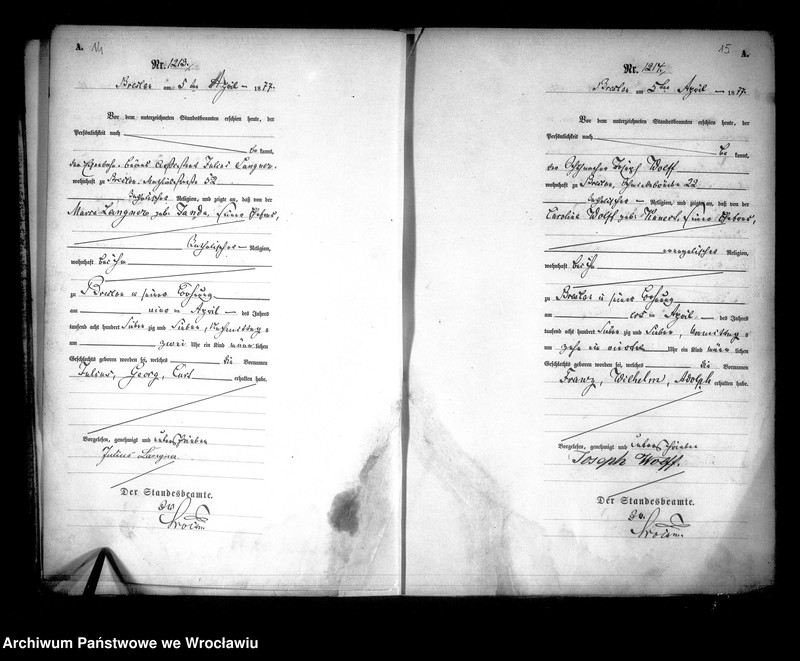 A. 14
Nr. 1213.
Breslau am 5ten April 1877.
Vor dem unterzeichneten Standesbeamten erschien heute, der
Persönlichkeit nach
be kannt,
Julius Langner
wohnhaft zu Breslau, 52
katholischer Religion, und zeigte an, daß von der
Langner geb. Jande, seiner Ehefrau,
katholischer Religion,
wohnhaft bei ihm
zu Breslau in seiner Wohnung
am April des Jahres
tausend acht hundert sieben zig und sieben, Nachmittags
um zwei Uhr ein Kind männ lichen
Geschlechts geboren worden sei, welches die Vornamen
Julius, Georg, Curt erhalten habe.
Vorgelesen, genehmigt und unterschrieben
Julius Langner
Der Standesbeamte.
15 A.
Nr. 1214.
Breslau am 5ten April 1877.
Vor dem unterzeichneten Standesbeamten erschien heute, der
Persönlichkeit nach
be kannt,
der Joseph Wolff
wohnhaft zu Breslau, Schmiedebrücke 22
katholischer Religion, und zeigte an, daß von der
Caroline Wolff geb. seiner Ehefrau,
evangelischer Religion,
wohnhaft bei ihm
zu Breslau in seiner Wohnung
am April des Jahres
tausend acht hundert sieben zig und sieben, Vormittags
um Uhr ein Kind männ lichen
Geschlechts geboren worden sei, welches die Vornamen
Franz, Wilhelm, Adolph erhalten habe.
Vorgelesen, genehmigt und unterschrieben
Joseph Wolff.
Der Standesbeamte.
Archiwum Państwowe we Wrocławiu